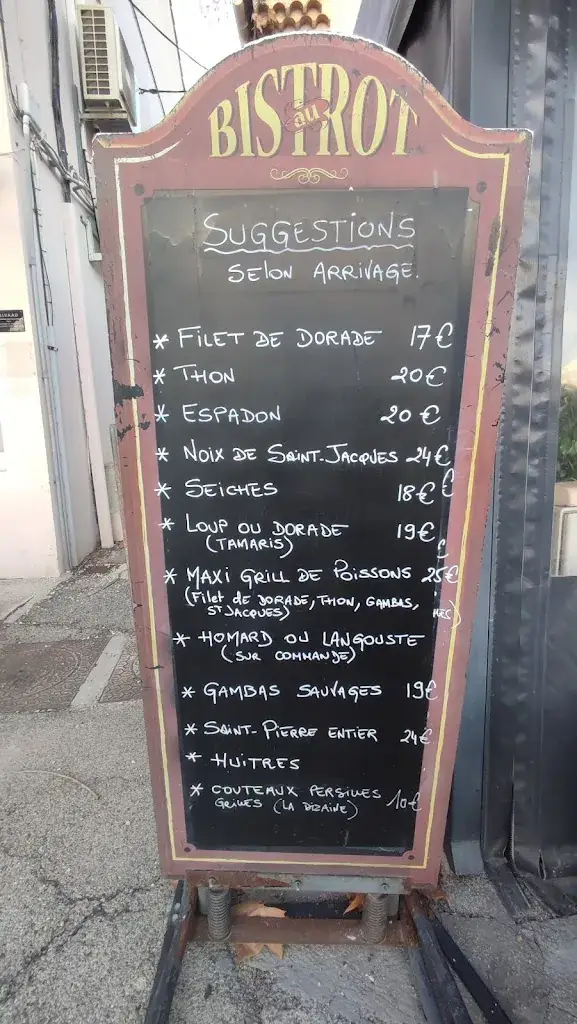 BISTROT
au
SUGGESTIONS
SELON ARRIVAGE.
* FILET DE DORADE 17€
* THON 20€
* ESPADON 20€
* NOIX DE SAINT-JACQUES 24€
* SEICHES 18€
* LOUP OU DORADE 19€
(TAMARIS)
* MAXI GRILL DE POISSONS 25€
(Filet de DORADE, THON, GAMBAS,
ST JACQUES)
* HOMARD OU LANGOUSTE
(SUR COMMANDE)
* GAMBAS SAUVAGES 19€
* SAINT-PIERRE ENTIER 24€
* HUITRES
* COUTEAUX PERSILLES 10€
GRILLES (LA DIZAINE)